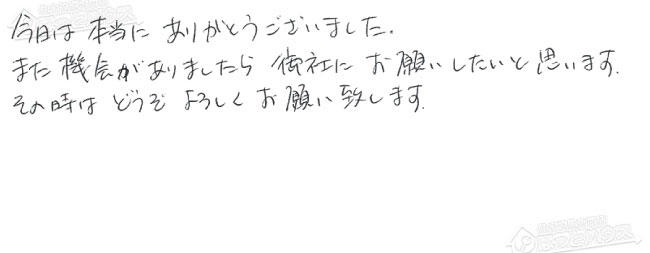 今日は本当にありがとうございました.
また機会がありましたら御社にお願いしたいと思います.
その時はどうぞよろしくお願い致します.